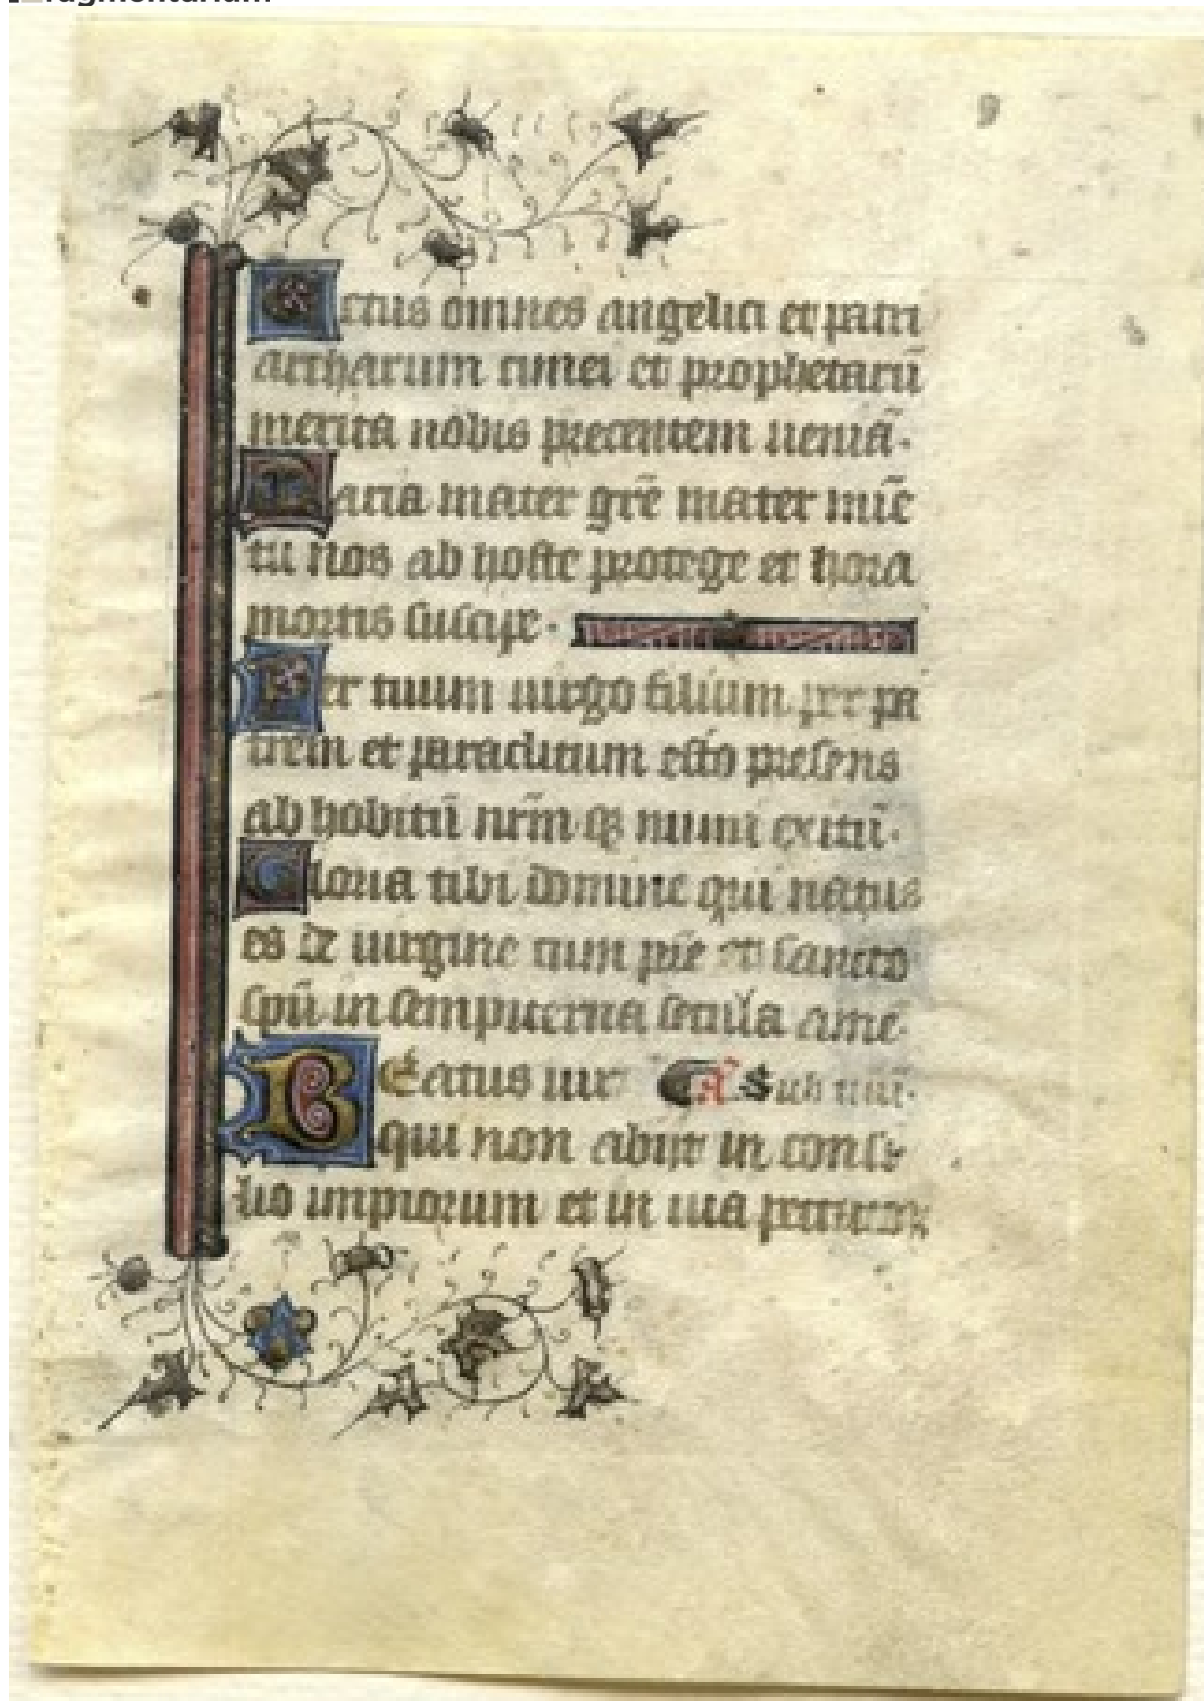 9
Cctus omnes angelici et patri
archarum cunei et prophetarū
merita nobis precentem ueniā.
Maria mater gr̄e mater mīe
tu nos ab hoste protege et hora
mortis suscipe.
Per tuum uirgo filium per pa
trem et paraclitum esto presens
ad hobitū nr̄m qꝫ exitū.
Gloria tibi domine qui natus
es de uirgine cum pr̄e et sancto
spū in sempiterna secula amē.
BEatus uir A᷑ Sub
qui non abijt in consi
lio impiorum et in uia